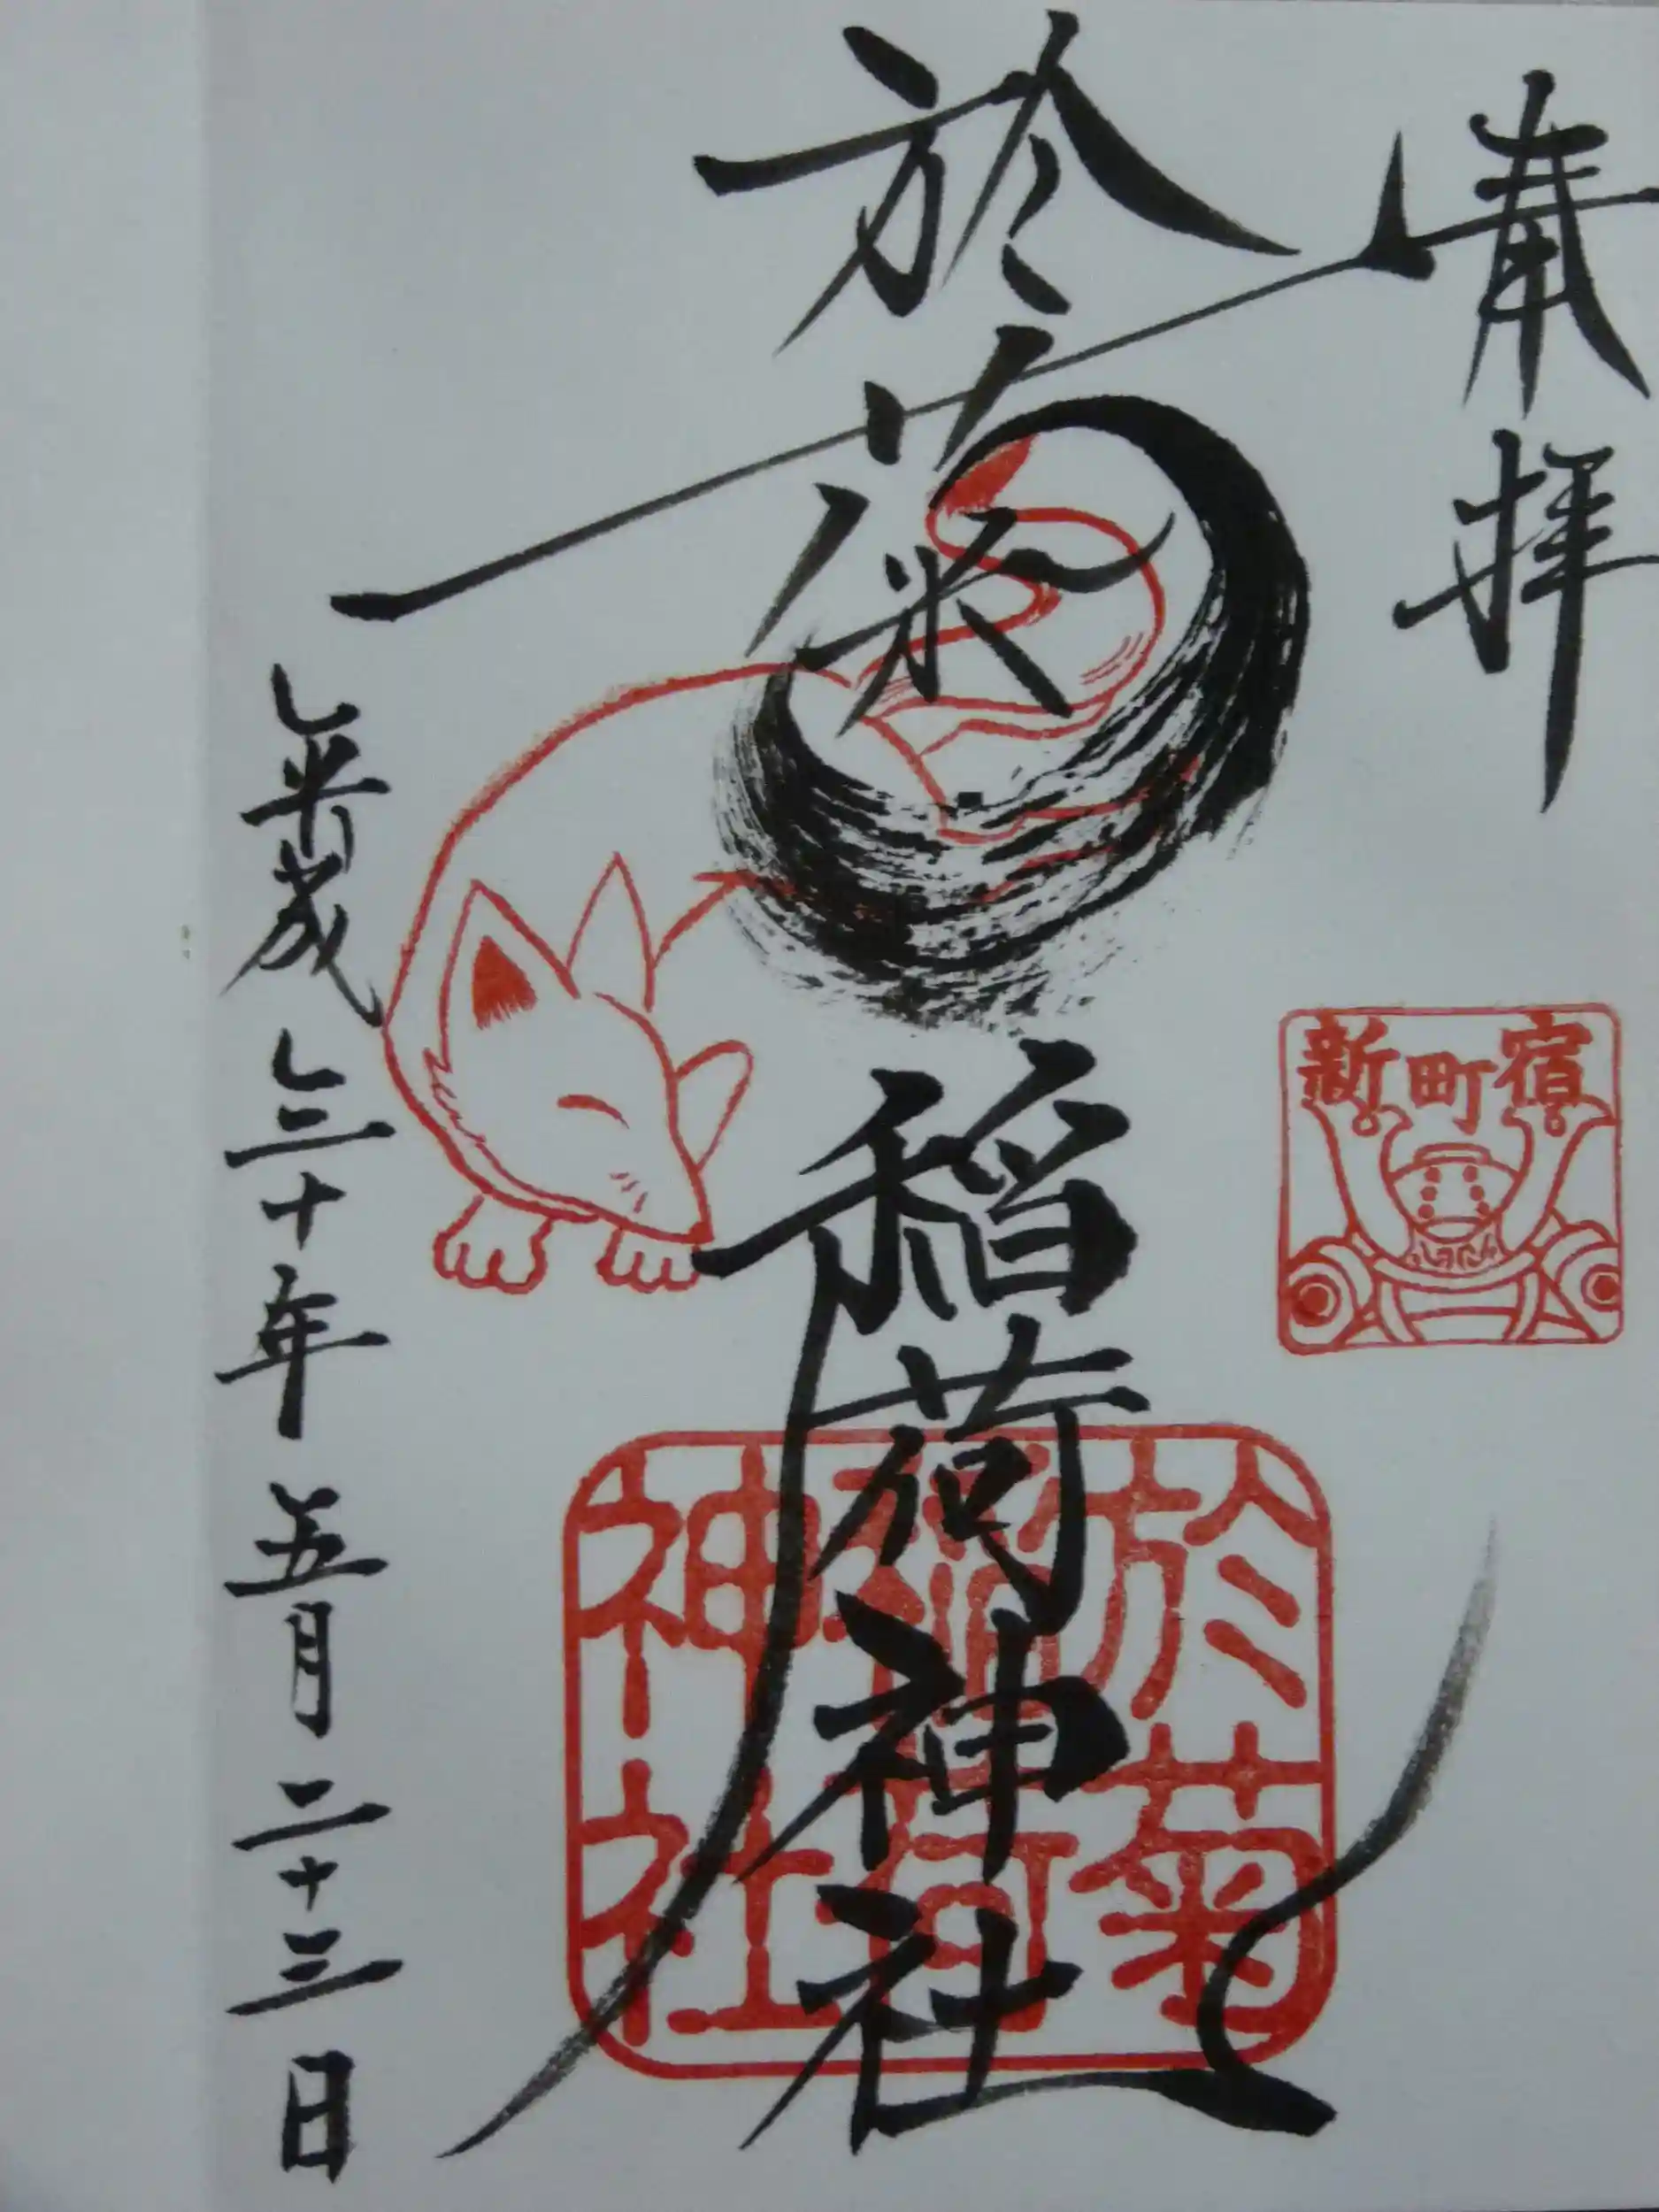 奉拝
新町宿
於菊稲荷神社
於菊
稲荷
神社
平成三十年五月二十三日